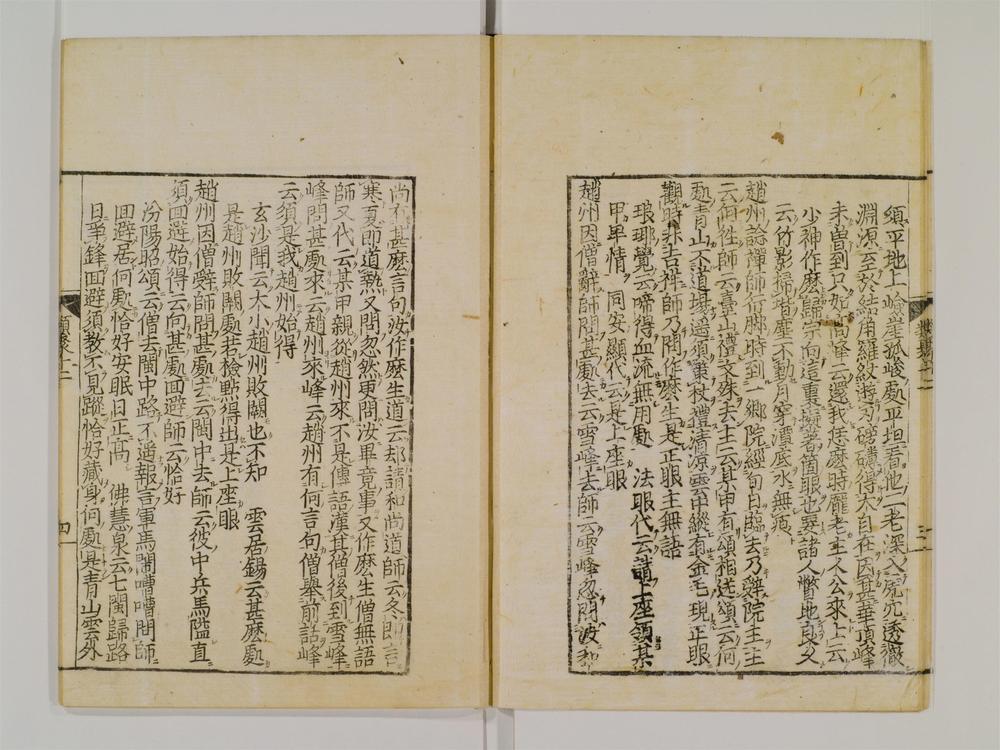 須平地上嶮崖孤峻處平坦看他二老深入虎穴透徹
淵源至於結角羅紋游刃磅礴得大自在因甚華頂峰
未曾到只如高峰云還我恁麽時龐老主人公來上云
少神作麽歸宗向這裏擬著箇眼也要諸人瞥地良久
云竹影掃堦塵不動月穿潭底水無痕
趙州諗禪師行脚時到一鄉院經旬日臨去乃辭院主主
云何徃師云臺山禮文殊去主云某甲有頌相送頌云何
處青山不道場遥須策杖禮清凉雲中縱有金毛現正眼
觀時非吉祥師乃問作麽生是正眼主無語
瑯瑘覺云啼得血流無用處 法眼代云請上座領某
甲卑情 同安顯代云是上座眼
趙州因僧辭師問甚處去云雪峰去師云雪峰忽問汝和
尚有甚麽言句汝作麽生道云却請和尚道師云冬即言
寒夏即道熱又問忽然更問汝畢竟事又作麽生僧無語
師又代云某甲親從趙州來不是傳語漢其僧後到雪峰
峰問甚處來云趙州來峰云趙州有何言句僧舉前話峰
云須是我趙州始得
玄沙聞云大小趙州敗闕也不知 雲居錫云甚麽處
是趙州敗闕處若檢點得出是上座眼
趙州因僧辞師問甚處去云閩中去師云彼中兵馬隘直
須回避始得云向甚處回避師云恰好
汾陽昭頌云僧去閩中路不遥報言軍馬閙嘈嘈問師
回避居何處恰好安眠日正高 佛慧泉云七閩歸路
日羊鋒回避須教不見蹤恰好藏身何處是青山雲外
三
四